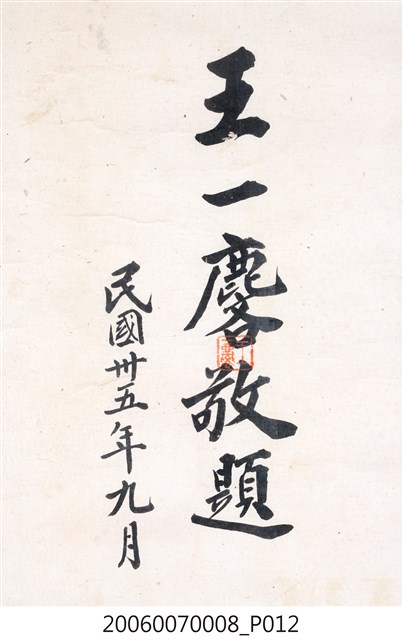 王一麐敬題
民國卅五年九月
20060070008_P012